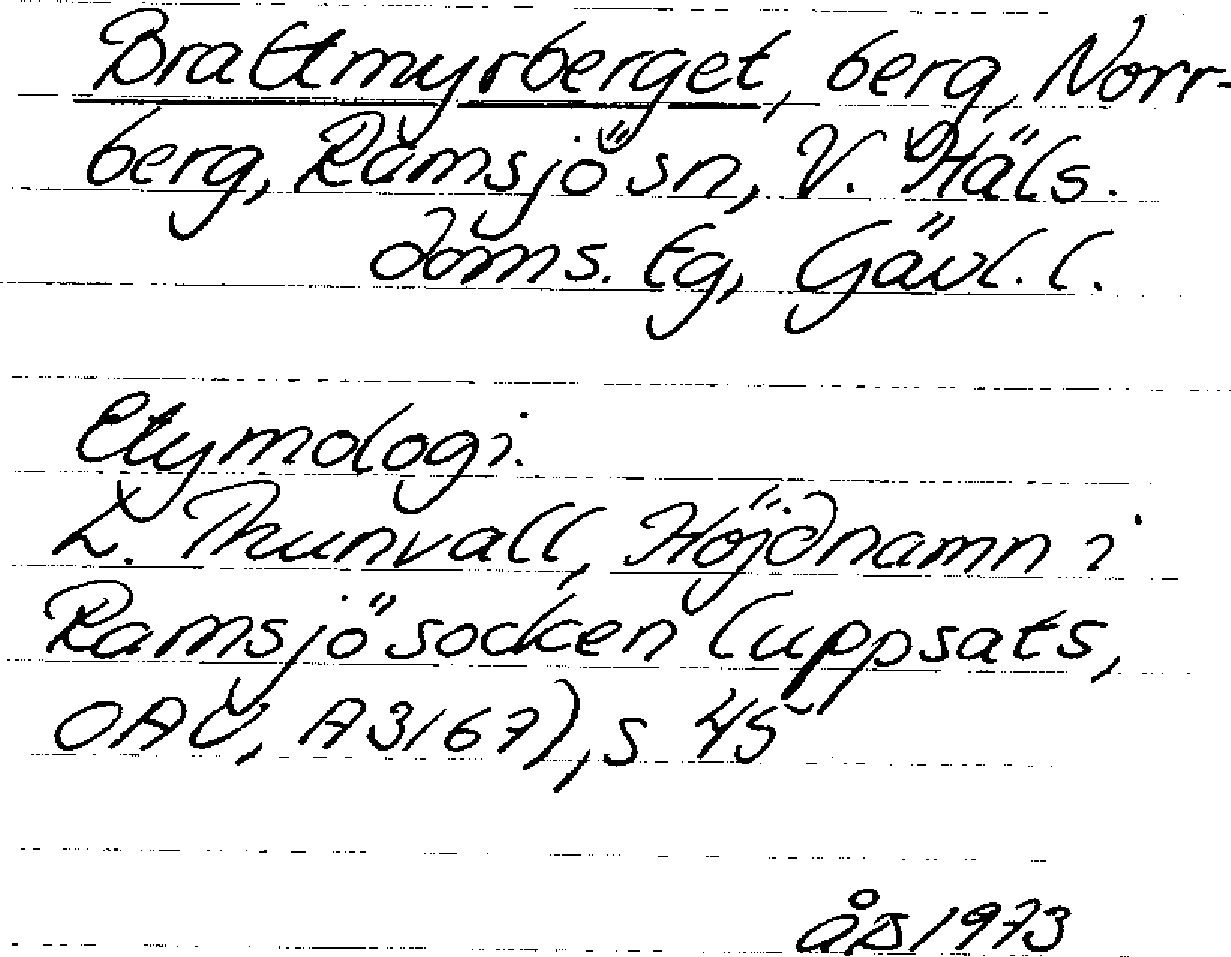 Brattmyrberget, berg, Norr-
berg, Ramsjö sn, V. Häls.
doms. tg, Gävl. l.
Etymologi.
L. Thunvall, Höjdnamn i
Ramsjö socken (uppsats,
OAU, A3167), s 45
1973